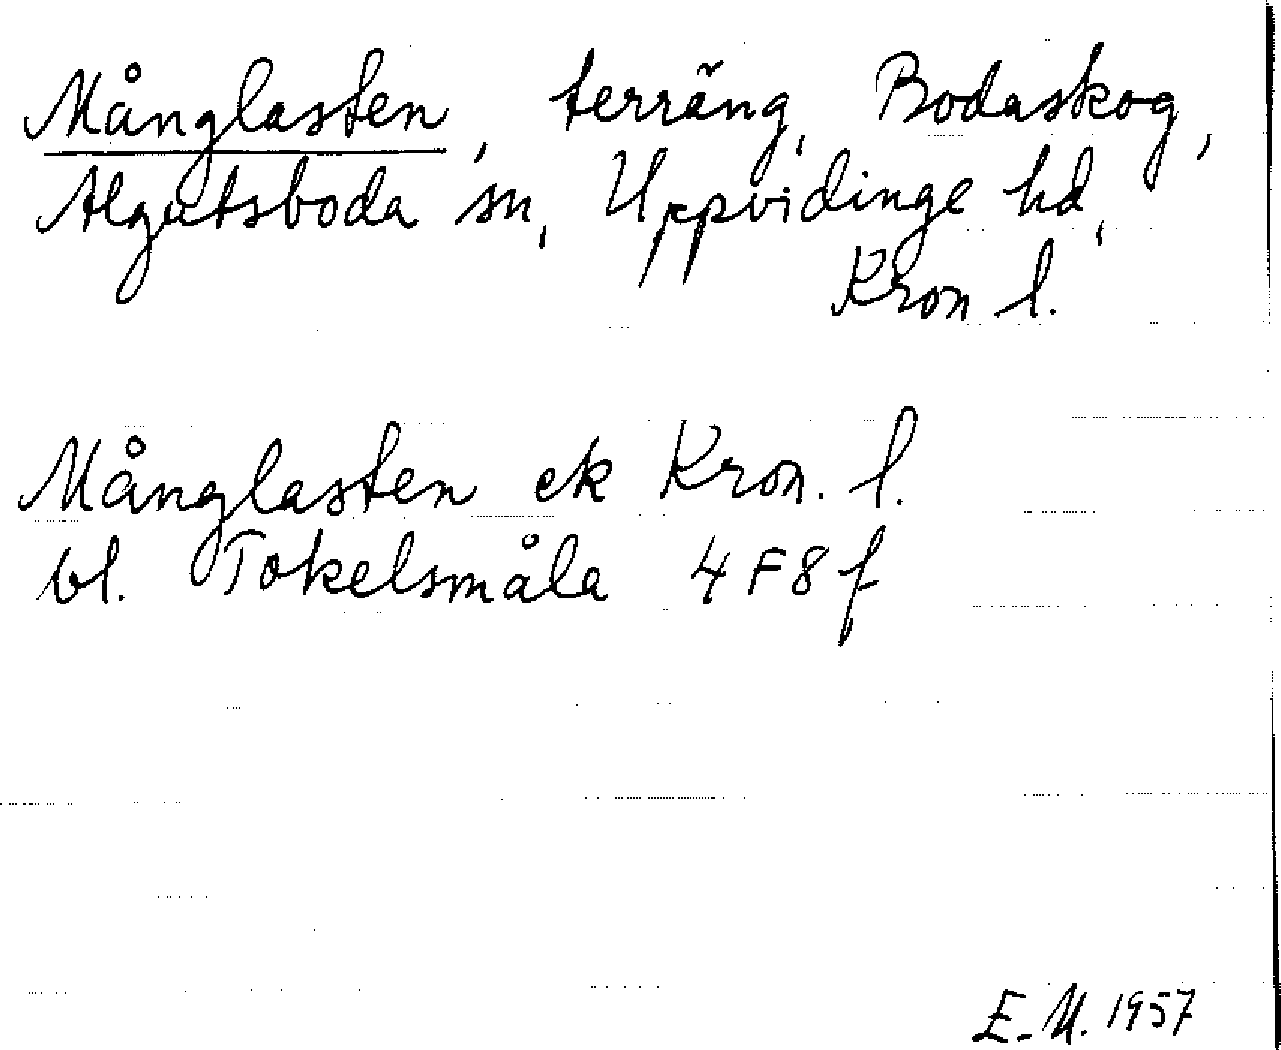 Månglasten, terräng, Bodaskog,
Algutsboda sn, Uppvidinge hd,
Kron l.
Månglasten ek Kron. l.
bl. Tokelsmåla 4F8f
E.M. 1957